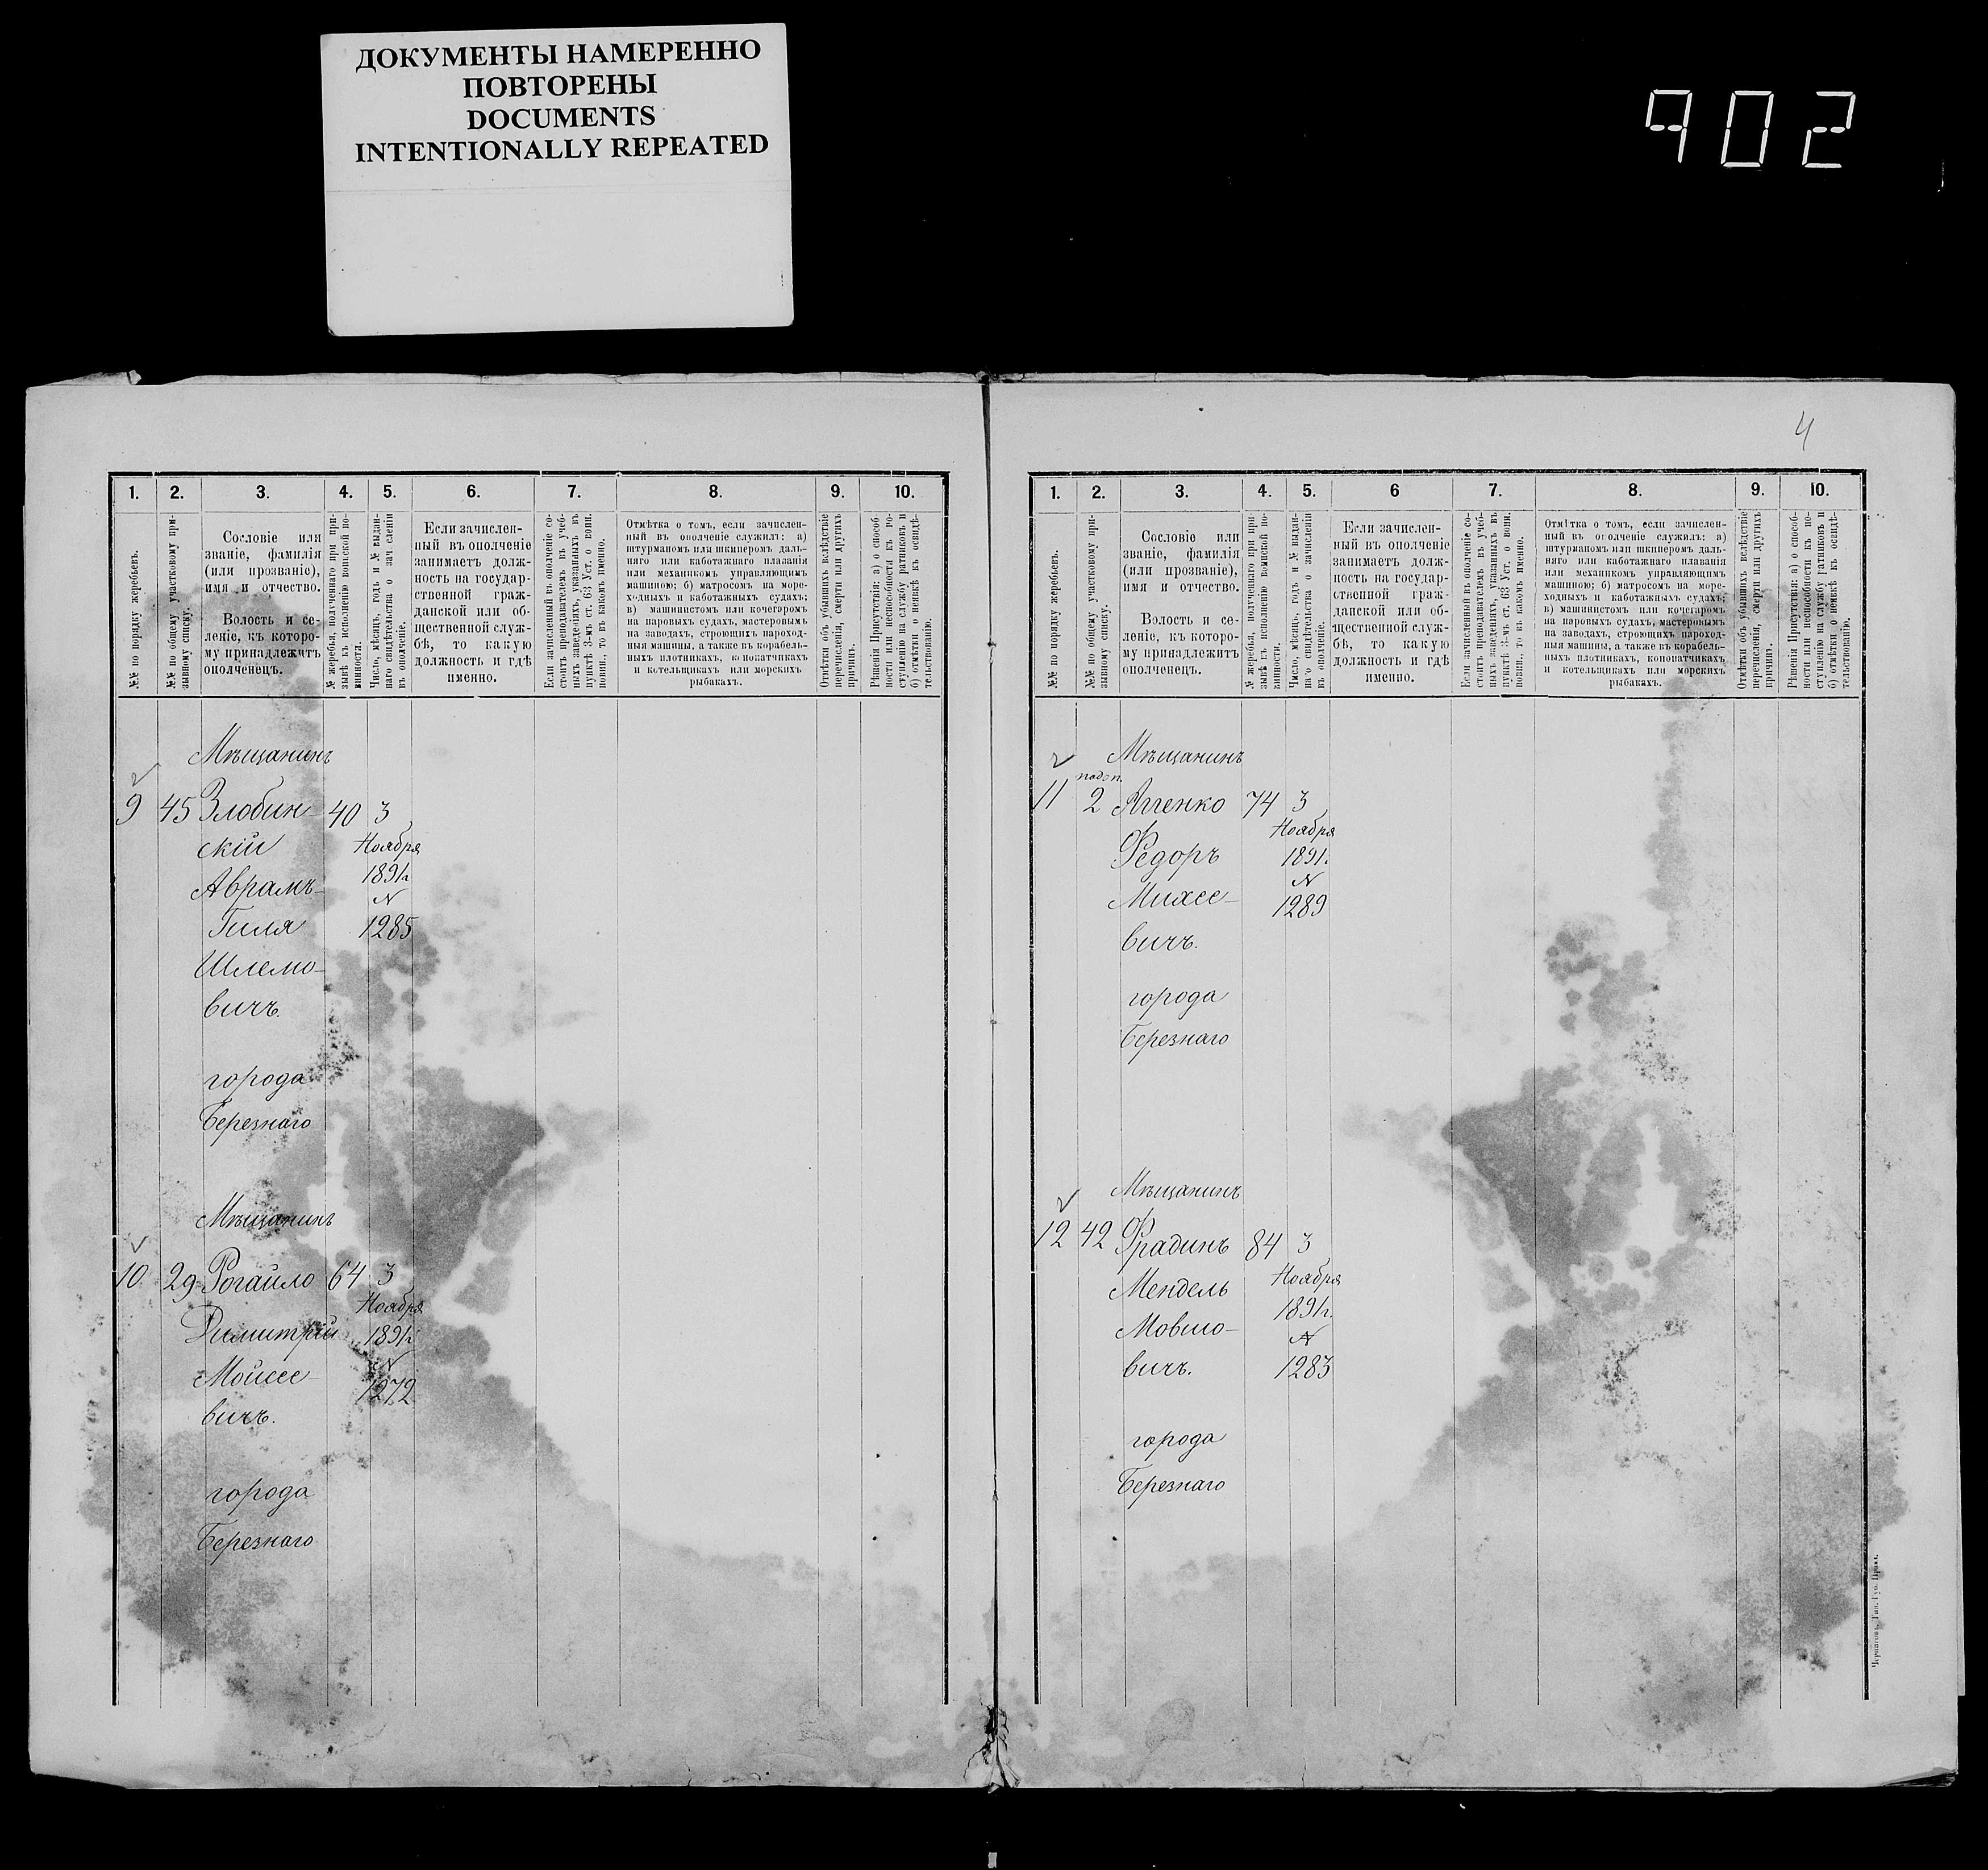 ДОКУМЕНТЫ НАМЕРЕННО
ПОВТОРЕНЫ
DOCUMENTS
INTENTIONALLY REPEATED
902
1. 2. 3. 4. 5. 6. 7. 8. 9. 10.
№№ по порядку жеребьевъ.
№№ по общему участковому при-
зывному списку.
Сословіе или
званіе, фамилія
(или прозваніе),
имя и отчество.
Волость и се-
леніе, къ которо-
му принадлежитъ
ополченецъ.
№ жеребья, полученнаго при при-
зывѣ къ исполненію воинской по-
винности.
Число, мѣсяцъ, годъ и № выдан-
наго свидѣтельства о зачисленіи
въ ополченіе.
Если зачислен-
ный въ ополченіе
занимаетъ долж-
ность на государ-
ственной граж-
данской или об-
щественной служ-
бѣ, то какую
должность и гдѣ
именно.
Если зачисленный въ ополченіе со-
стоитъ преподавателемъ въ учеб-
ныхъ заведеніяхъ, указанныхъ въ
пунктѣ 3-мъ ст. 63 Уст. о воин.
повин., то въ какомъ именно.
Отмѣтка о томъ, если зачислен-
ный въ ополченіе служилъ: а)
штурманомъ или шкиперомъ даль-
няго или каботажнаго плаванія
или механикомъ управляющимъ
машиною; б) матросомъ на море-
ходныхъ и каботажныхъ судахъ;
в) машинистомъ или кочегаромъ
на паровыхъ судахъ, мастеровымъ
на заводахъ, строющихъ пароход-
ныя машины, а также въ корабель-
ныхъ плотникахъ, конопатчикахъ
и котельщикахъ или морскихъ
рыбакахъ.
Отмѣтки объ убывшихъ вслѣдствіе
перечисленія, смерти или другихъ
причинъ.
Рѣшенія Присутствія: а) о способ-
ности или неспособности къ по-
ступленію на службу ратниковъ и
б) отмѣтки о неявкѣ къ освидѣ-
тельствованію.
Мѣщанинъ
9 45 Злобин- 40 3
скій Ноября
Аврамъ- 1891г.
Гиля № 1285
Шлемо-
вичъ.
города
Березнаго
Мѣщанинъ
10 29 Рогайло 64 3
Ноября
Димитрій 1891г.
Мойсее- №
вичъ. 1272
города
Березнаго
4
1. 2. 3. 4. 5. 6 7. 8. 9. 10.
№№ по порядку жеребьевъ.
№№ по общему участковому при-
зывному списку.
Сословіе или
званіе, фамилія
(или прозваніе),
имя и отчество.
Волость и се-
леніе, къ которо-
му принадлежитъ
ополченецъ.
№ жеребья, полученнаго при при-
зывѣ къ исполненію воинской по-
винности.
Число, мѣсяцъ, годъ и № выдан-
наго свидѣтельства о зачисленіи
въ ополченіе.
Если зачислен-
ный въ ополченіе
занимаетъ долж-
ность на государ-
ственной граж-
данской или об-
щественной служ-
бѣ, то какую
должность и гдѣ
именно.
Если зачисленный въ ополченіе со-
стоитъ преподавателемъ въ учеб-
ныхъ заведеніяхъ, указанныхъ въ
пунктѣ 3-мъ ст. 63 Уст. о воин.
повин., то въ какомъ именно.
Отмѣтка о томъ, если зачислен-
ный въ ополченіе служилъ: а)
штурманомъ или шкиперомъ даль-
няго или каботажнаго плаванія
или механикомъ управляющимъ
машиною; б) матросомъ на море-
ходныхъ и каботажныхъ судахъ;
в) машинистомъ или кочегаромъ
на паровыхъ судахъ, мастеровымъ
на заводахъ, строющихъ пароход-
ныя машины, а также въ корабель-
ныхъ плотникахъ, конопатчикахъ
и котельщикахъ или морскихъ
рыбакахъ.
Отмѣтки объ убывшихъ вслѣдствіе
перечисленія, смерти или другихъ
причинъ.
Рѣшенія Присутствія: а) о способ-
ности или неспособности къ по-
ступленію на службу ратниковъ и
б) отмѣтки о неявкѣ къ освидѣ-
тельствованію.
Мѣщанинъ
11 2 74 3
Ноября
Федоръ 1891г.
Михее- №
1289
вичъ.
города
Березнаго
Мѣщанинъ
12 42 Фрадинъ 84 3
Мендель Ноября
1891г.
Мовшо- №
вичъ. 1283
города
Березнаго
Черниговъ. Тип. Губ. Правл.